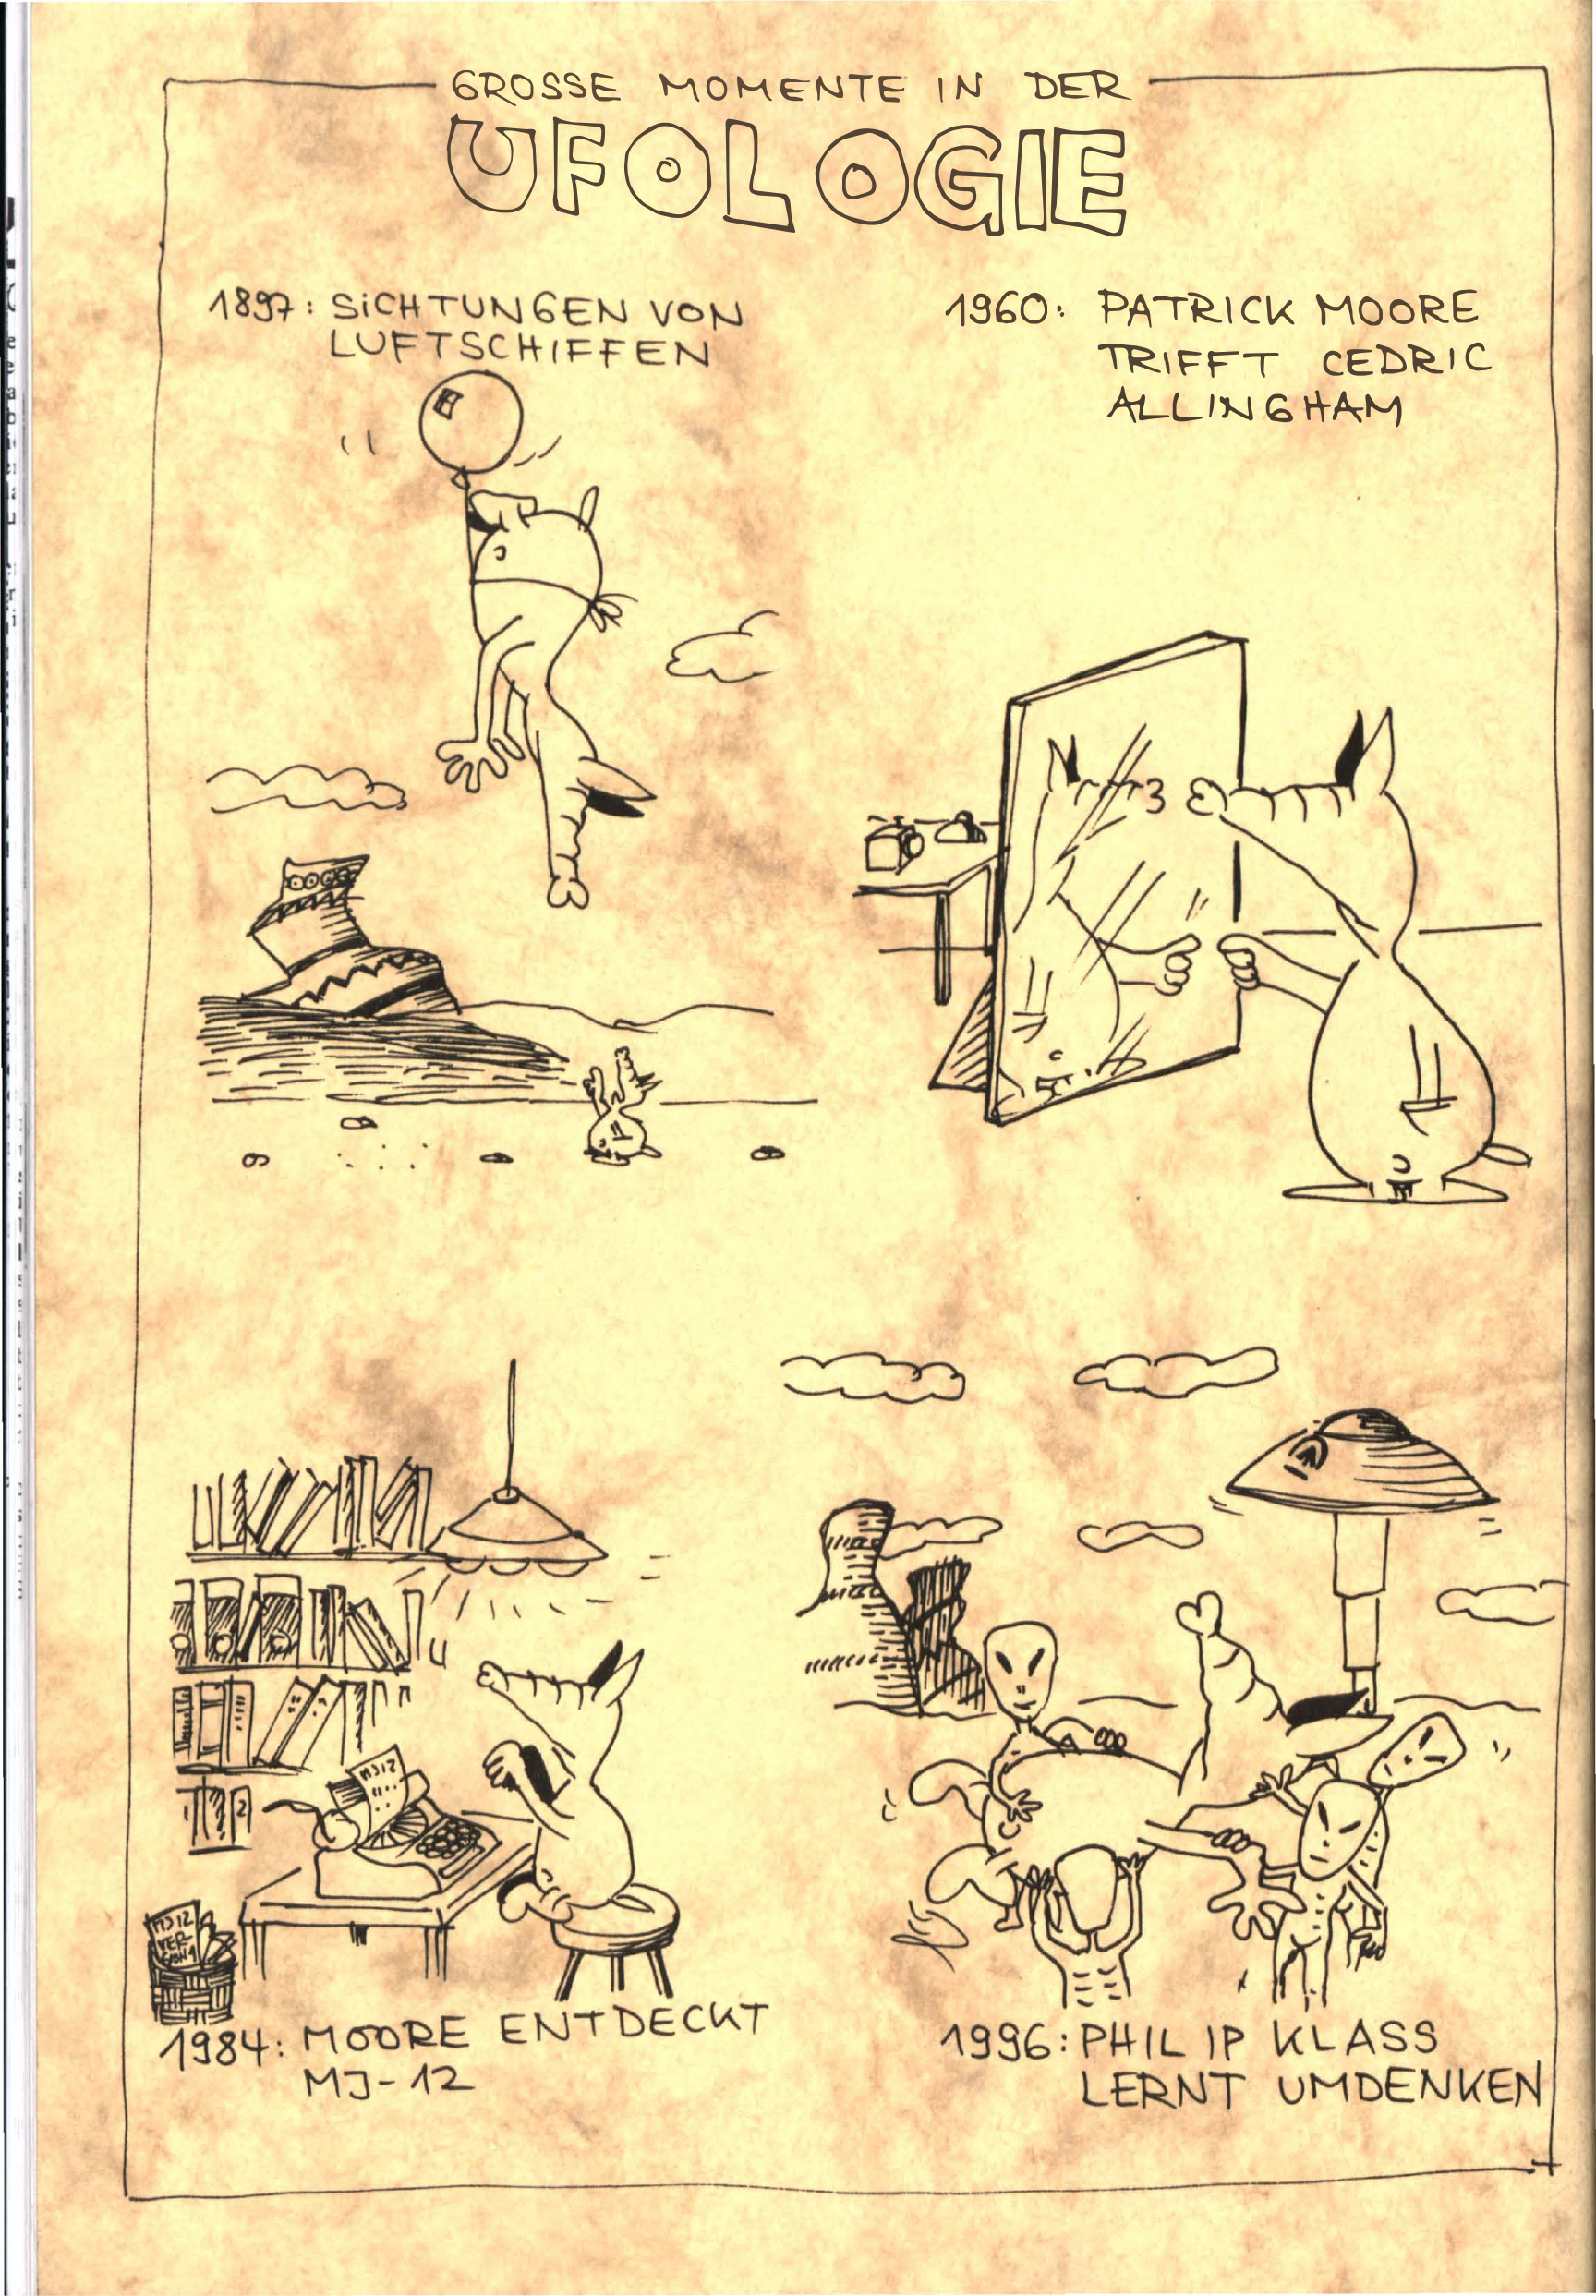 GROSSE MOMENTE IN DER
UFOLOGIE
1897: SICHTUNGEN VON
LUFTSCHIFFEN
1960: PATRICK MOORE
TRIFFT CEDRIC
ALLINGHAM
MJ12
MJ12
VER-
SION 1
1984: MOORE ENTDECKT
MJ-12
1996: PHILIP KLASS
LERNT UMDENKEN